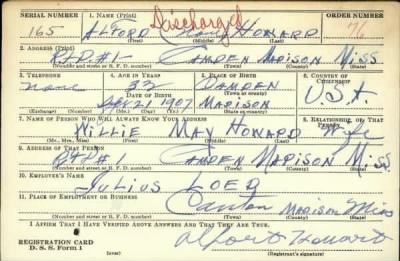 SERIAL NUMBER 1. NAME (Print) Discharged ORDER NUMBER
165 ALFORD HOWARD 76
(First) (Middle) (Last)
2. ADDRESS (Print)
RFD #1 CAMDEN MADISON MISS
(Number and street or R. F. D. number) (Town) (County) (State)
3. TELEPHONE 4. AGE IN YEARS 5. PLACE OF BIRTH 6. COUNTRY OF CITIZENSHIP
none 32 CAMDEN U.S.A.
DATE OF BIRTH
21 1907 MADISON
(Exchange) (Number) (Mo.) (Day) (Yr.) (State or country)
7. NAME OF PERSON WHO WILL ALWAYS KNOW YOUR ADDRESS 8. RELATIONSHIP OF THAT PERSON
WILLIE MAY HOWARD Wife
(Mr., Mrs., Miss) (First) (Middle) (Last)
9. ADDRESS OF THAT PERSON
RFD #1 CAMDEN MADISON MISS.
(Number and street or R. F. D. number) (Town) (County) (State)
10. EMPLOYER'S NAME
JULIUS LOEB
11. PLACE OF EMPLOYMENT OR BUSINESS
Canton MADISON Miss
(Number and street or R. F. D. number) (Town) (County) (State)
I AFFIRM THAT I HAVE VERIFIED ABOVE ANSWERS AND THAT THEY ARE TRUE.
REGISTRATION CARD
D. S. S. Form 1